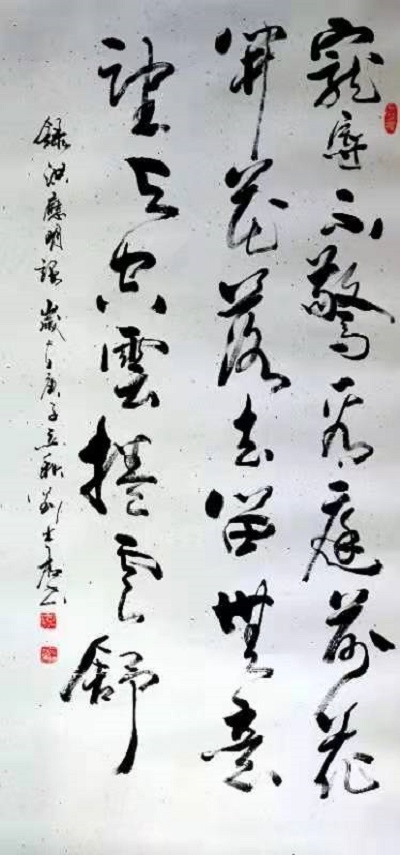 寵辱不驚看庭前花
開花落去留無意
望天空雲捲雲舒
錄洪應明語 歲在庚子立秋 劉士